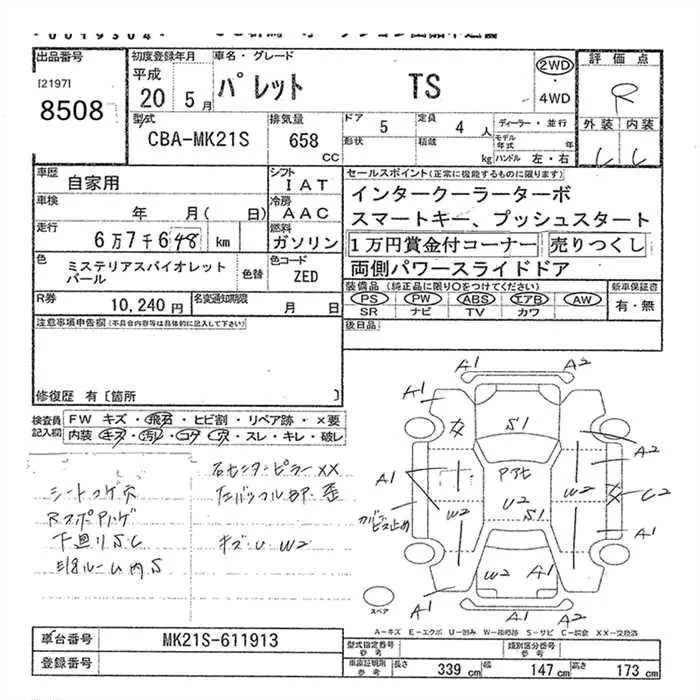 出品番号
[2197]
8508
初度登録年月
平成
20 5月
車名・グレード
パレット TS
2WD
・
4WD
評価点
R
外装 内装
型式
CBA-MK21S
排気量
658
CC
ドア
5
定員
4人
形状
積載
kg
ディーラー・並行
モデル年式 年
ハンドル 左・右
車歴
自家用
シフト
IAT
車検
年 月( 日)
冷房
AAC
走行
6万7千648 km
燃料
ガソリン
色
ミステリアスバイオレット
パール
色替
色コード
ZED
R券
10,240円
名変通知期限
月 日
セールスポイント(正常に機能するものに限ります)
インタークーラーターボ
スマートキー、プッシュスタート
1万円賞金付コーナー 売りつくし
両側パワースライドドア
装備品(純正品に限り○をつけてください)
PS PW ABS エアB AW
SR ナビ TV カワ
新車保証書
有・無
後日品
注意事項申告欄(不具合内容等は具体的に記入して下さい)
修復歴 有〔箇所 〕
検査員
記入欄
FW キズ・飛石・ヒビ割・リペア跡・×要
内装 キズ・汚レ・コゲ・穴・スレ・キレ・破レ
シートコゲ穴
下廻りS
右センターピラーXX
キズ U W2
A1
A2
A1
S1
A2
A1
W2
U2
S1
W2
C2
カバー
ビス止め
A1
W2
A1
A1
A2
スペア
A―キズ E―エクボ U―凹み W―補修跡 S―サビ C―腐食 XX―交換済
車台番号
MK21S-611913
登録番号
型式指定番号
参考
類別区分番号
参考
車庫証明用
参考
長さ
339cm
幅
147cm
高さ
173cm